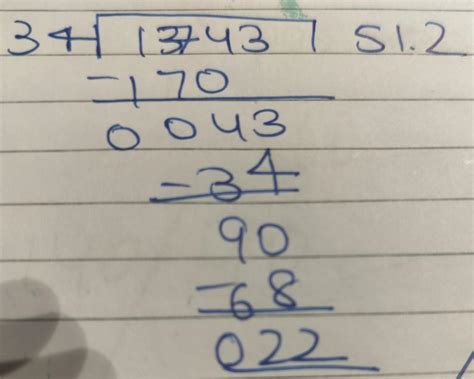 34 13743 51.2
-170
0 043
-34
90
-68
022